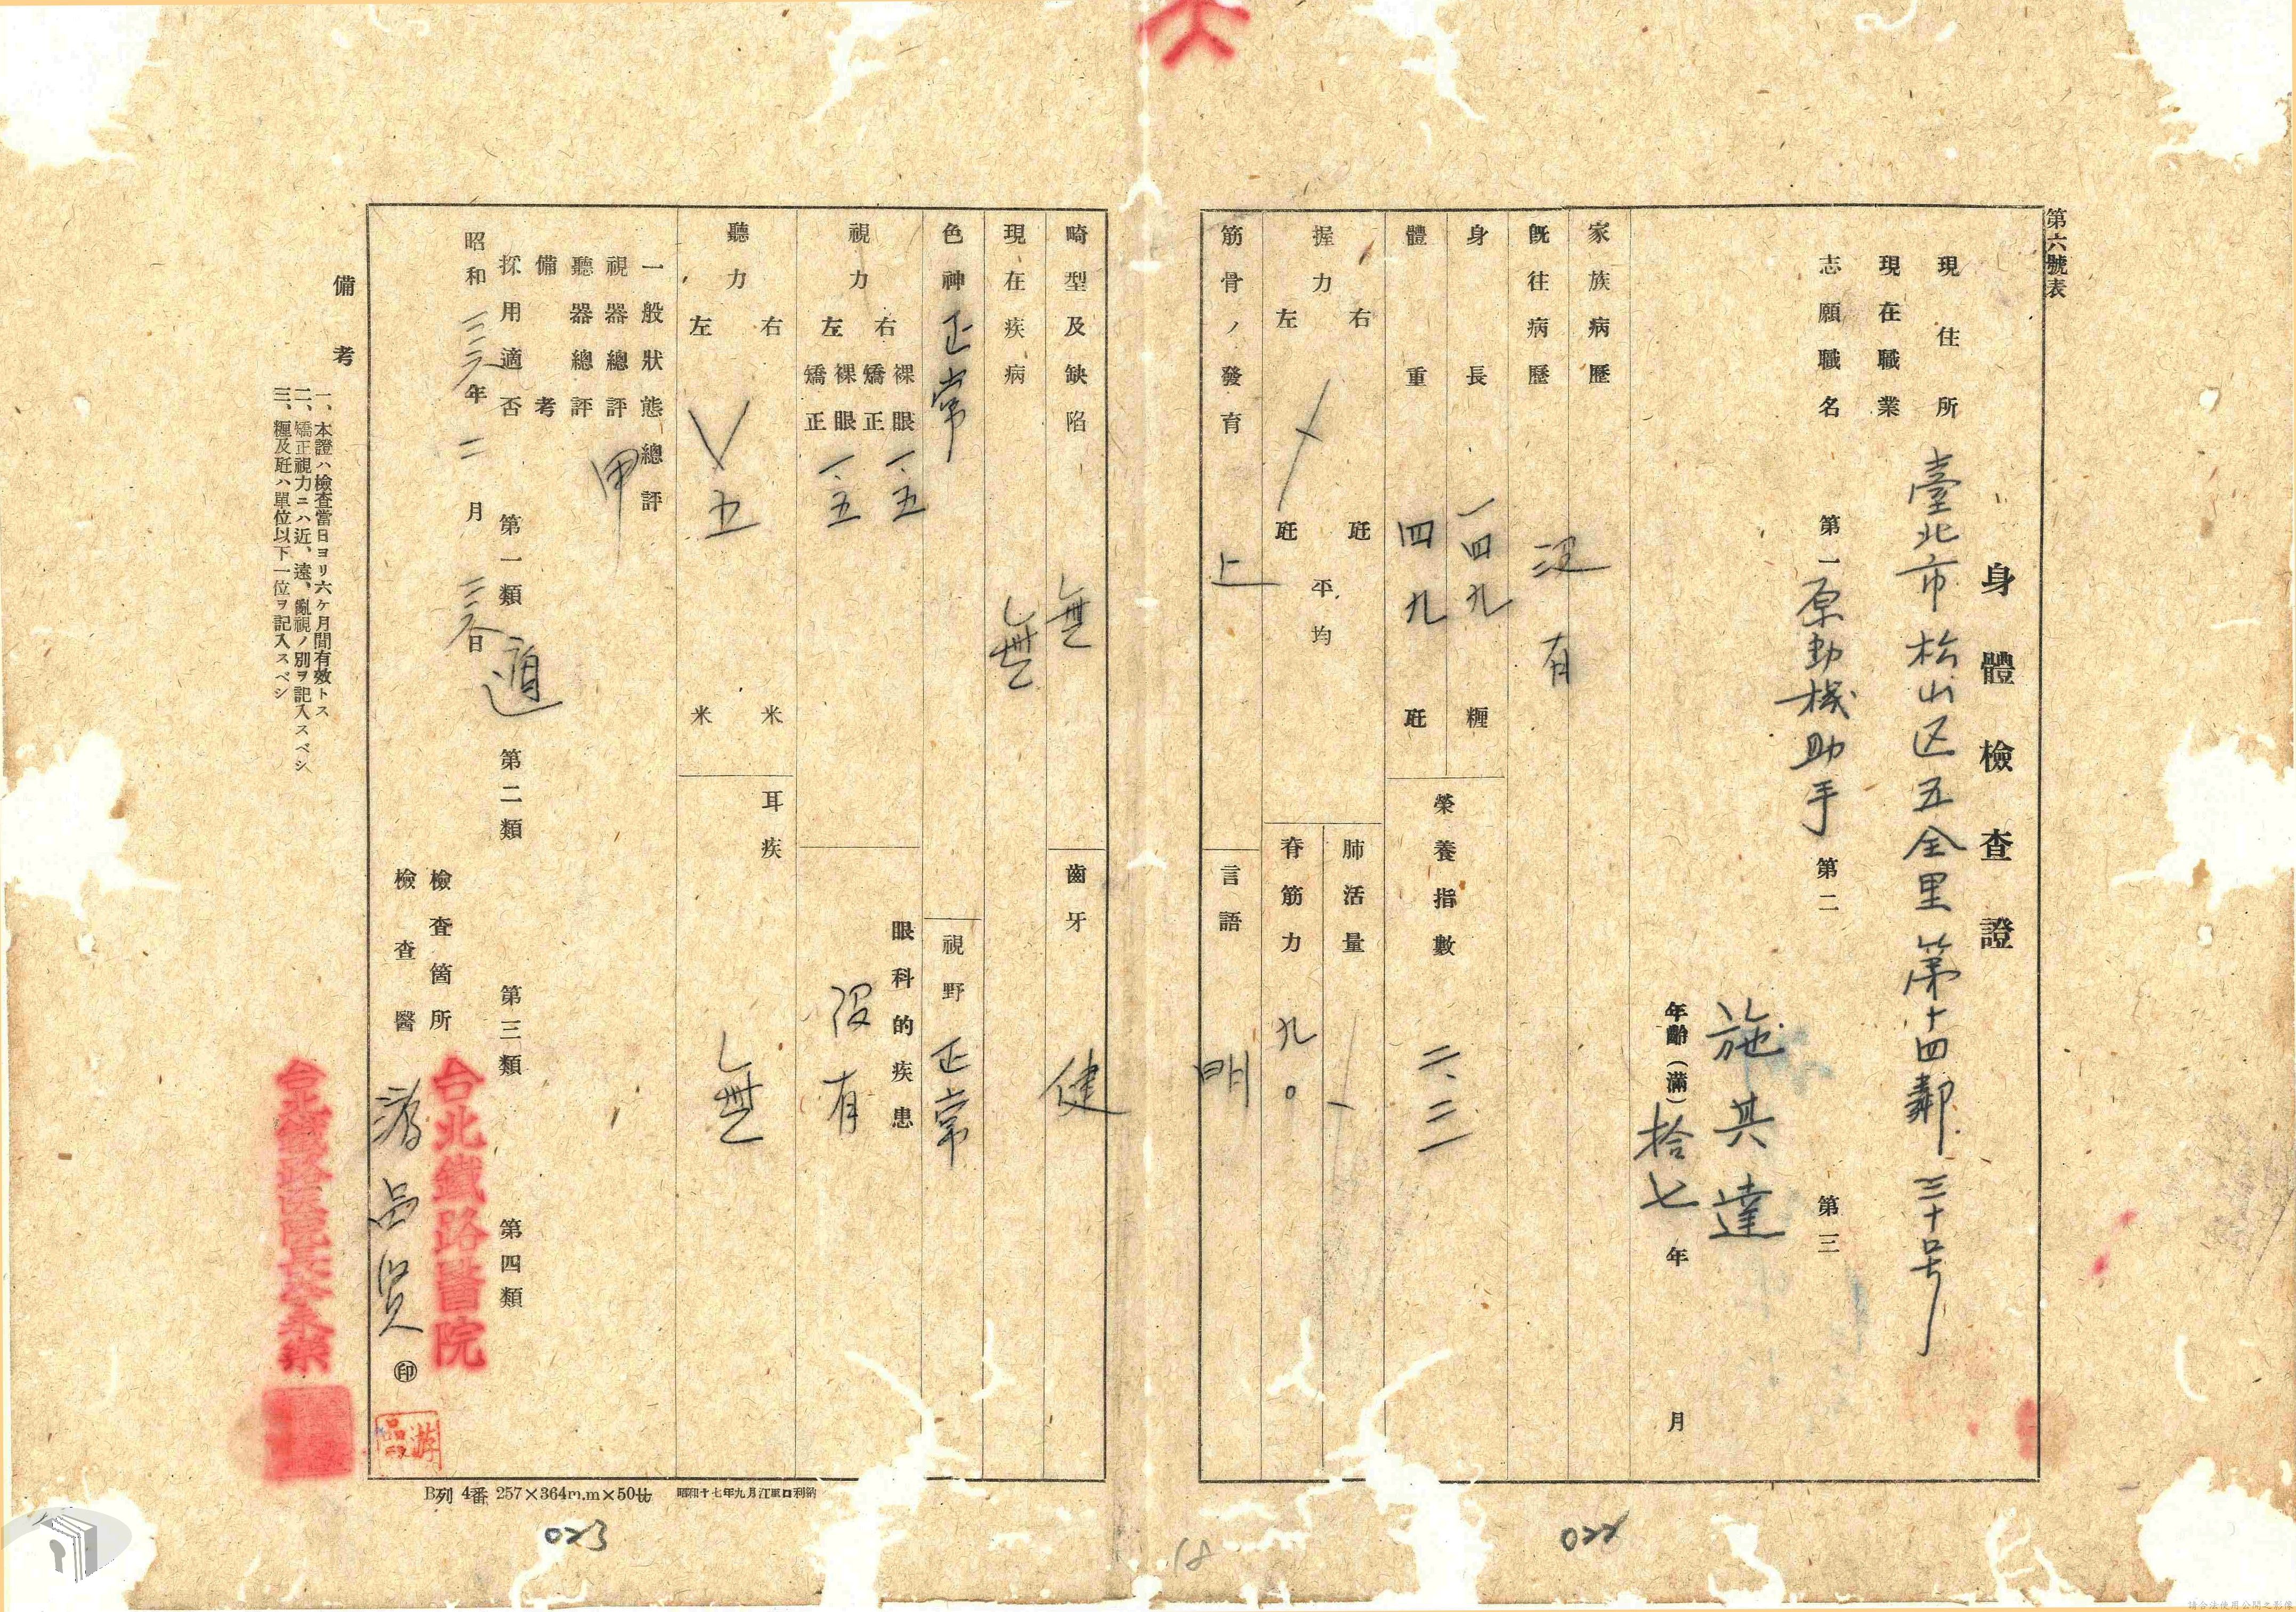 第六號表
身體檢查證
現住所 臺北市松山区五全里第十四鄰三十号
現在職業
志願職名 第一 原動機助手 第二 第三
施其達
年齡(滿)拾七年 月
家族病歷
既往病歷 沒有
身長 一四九 糎
體重 四九 瓩
榮養指數 二、二
握力 右 瓩 左 瓩 平均
肺活量
脊筋力 九〇
筋骨ノ發育 上
言語 明
畸型及缺陷 無
齒牙 健
現在疾病 無
色神 正常
視野 正常
視力 右 裸眼 一.五 矯正
左 裸眼 一.五 矯正
眼科的疾患 沒有
聽力 右 米
左 五 米
耳疾 無
一般狀態總評 甲
視器總評
聽器總評
備考
採用適否 第一類 適 第二類 第三類 第四類
昭和 年 二月 日
檢查箇所 台北鐵路醫院
檢查醫 游 賢 ㊞
備考
一、本證ハ檢查當日ヨリ六ケ月間有效トス
二、矯正視力ニハ近、遠、亂視ノ別ヲ記入スベシ
三、糎及瓩ハ單位以下一位ヲ記入スベシ
B列 4番 257×364m.m×50 昭和十七年九月江里口利納
023
18
022
請合法使用公開之影像